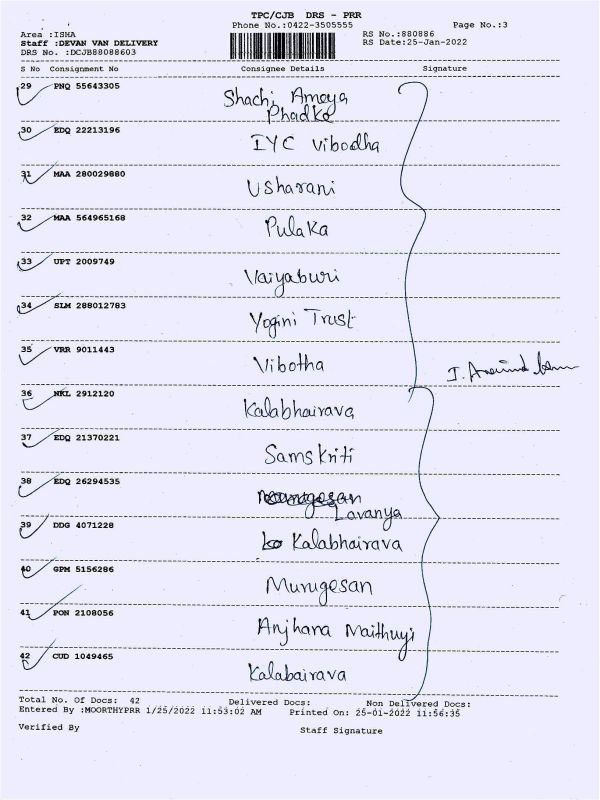 TPC/CJB DRS - PRR
Phone No.:0422-3505555 Page No.:3
Area :ISHA RS No.:880886
Staff :DEVAN VAN DELIVERY RS Date:25-Jan-2022
DRS No. :DCJB88088603
S No Consignment No Consignee Details Signature
29 PNQ 55643305 Shachi Ameya
Phadke
30 EDQ 22213196 IYC Vibodha
31 MAA 280029880 Usharani
32 MAA 564965168 Pulaka
33 UPT 2009749 Vaiyaburi
34 SLM 288012783 Yogini Trust
35 VRR 9011443 Vibotha
I. Aravind
36 NKL 2912120 Kalabhairava
37 EDQ 21370221 Samskriti
38 EDQ 26294535
Lavanya
39 DDG 4071228 Kalabhairava
40 GPM 5156286 Murugesan
41 PON 2108056 Anjhana Maithuyi
42 CUD 1049465 Kalabairava
Total No. Of Docs: 42 Delivered Docs: Non Delivered Docs:
Entered By :MOORTHYPRR 1/25/2022 11:53:02 AM Printed On: 25-01-2022 11:56:35
Verified By Staff Signature